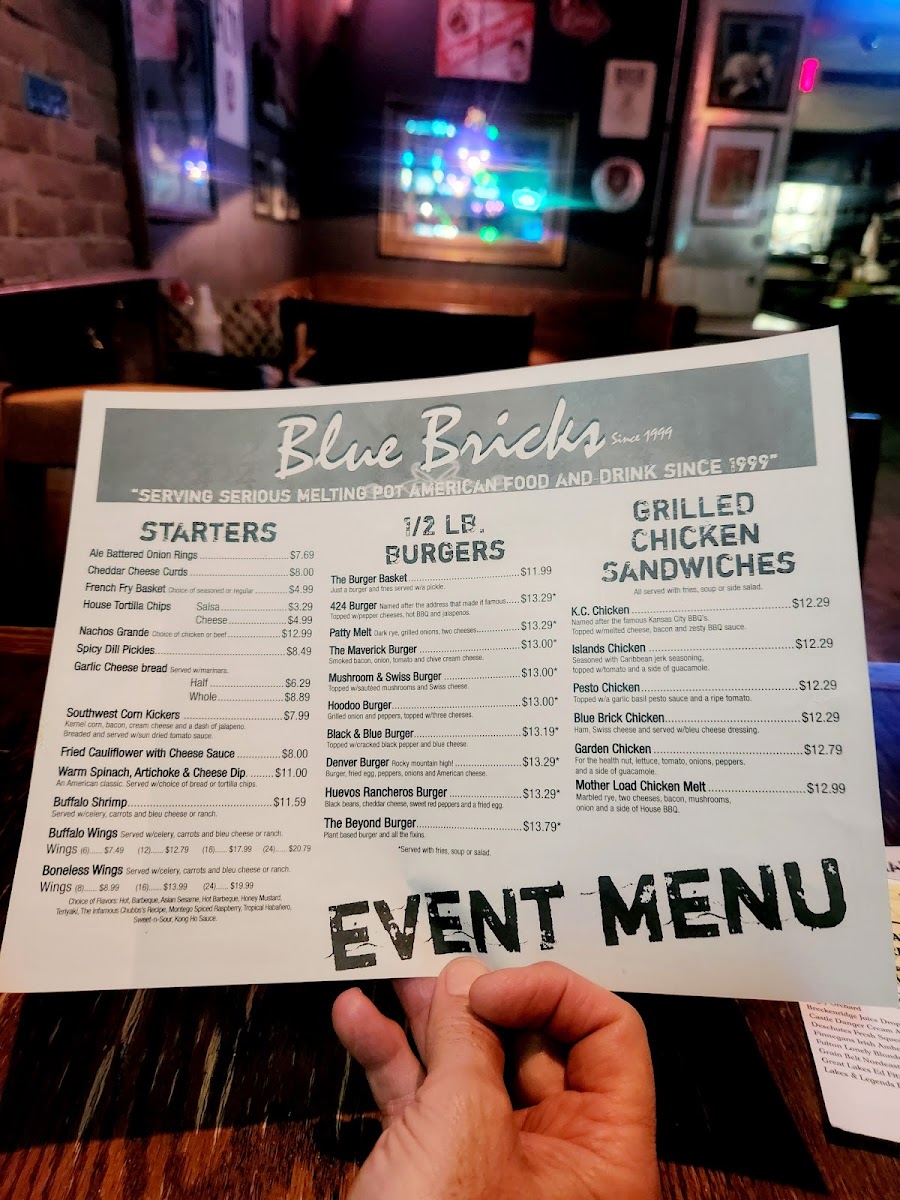 Blue Bricks Since 1999
"SERVING SERIOUS MELTING POT AMERICAN FOOD AND DRINK SINCE 1999"
STARTERS
Ale Battered Onion Rings $7.69
Cheddar Cheese Curds $8.00
French Fry Basket Choice of seasoned or regular $4.99
House Tortilla Chips Salsa $3.29
Cheese $4.99
Nachos Grande Choice of chicken or beef $12.99
Spicy Dill Pickles $8.49
Garlic Cheese bread Served w/marinara.
Half $6.29
Whole $8.89
Southwest Corn Kickers $7.99
Kernel corn, bacon, cream cheese and a dash of jalapeno.
Breaded and served w/sun dried tomato sauce.
Fried Cauliflower with Cheese Sauce $8.00
Warm Spinach, Artichoke & Cheese Dip $11.00
An American classic. Served w/choice of bread or tortilla chips.
Buffalo Shrimp $11.59
Served w/celery, carrots and bleu cheese or ranch.
Buffalo Wings Served w/celery, carrots and bleu cheese or ranch.
Wings (6) $7.49 (12) $12.79 (18) $17.99 (24) $20.79
Boneless Wings Served w/celery, carrots and bleu cheese or ranch.
Wings (8) $8.99 (16) $13.99 (24) $19.99
Choice of Flavors: Hot, Barbeque, Asian Sesame, Hot Barbeque, Honey Mustard,
Teriyaki, The Infamous Chubbs's Recipe, Montego Spiced Raspberry, Tropical Habañero,
Sweet-n-Sour, Kong Ho Sauce.
1/2 LB.
BURGERS
The Burger Basket $11.99
Just a burger and fries served w/a pickle.
424 Burger Named after the address that made it famous $13.29*
Topped w/pepper cheeses, hot BBQ and jalapenos.
Patty Melt Dark rye, grilled onions, two cheeses $13.29*
The Maverick Burger $13.00*
Smoked bacon, onion, tomato and chive cream cheese.
Mushroom & Swiss Burger $13.00*
Topped w/sauteed mushrooms and Swiss cheese.
Hoodoo Burger $13.00*
Grilled onion and peppers, topped w/three cheeses.
Black & Blue Burger $13.19*
Topped w/cracked black pepper and blue cheese.
Denver Burger Rocky mountain high! $13.29*
Burger, fried egg, peppers, onions and American cheese.
Huevos Rancheros Burger $13.29*
Black beans, cheddar cheese, sweet red peppers and a fried egg.
The Beyond Burger $13.79*
Plant based burger and all the fixins.
*Served with fries, soup or salad.
GRILLED
CHICKEN
SANDWICHES
All served with fries, soup or side salad.
K.C. Chicken $12.29
Named after the famous Kansas City BBQ's.
Topped w/melted cheese, bacon and zesty BBQ sauce.
Islands Chicken $12.29
Seasoned with Caribbean jerk seasoning,
topped w/tomato and a side of guacamole.
Pesto Chicken $12.29
Topped w/a garlic basil pesto sauce and a ripe tomato.
Blue Brick Chicken $12.29
Ham, Swiss cheese and served w/bleu cheese dressing.
Garden Chicken $12.79
For the health nut, lettuce, tomato, onions, peppers.
and a side of guacamole.
Mother Load Chicken Melt $12.99
Marbled rye, two cheeses, bacon, mushrooms,
onion and a side of House BBQ.
EVENT MENU
Orchard
Breckenridge Juice Drop
Castle Danger Cream
Deschutes Fresh Sque
Finnegans Irish Amb
Fulton Lonely Blond
Grain Belt Nordeast
Great Lakes Ed Fit
Lakes & Legends